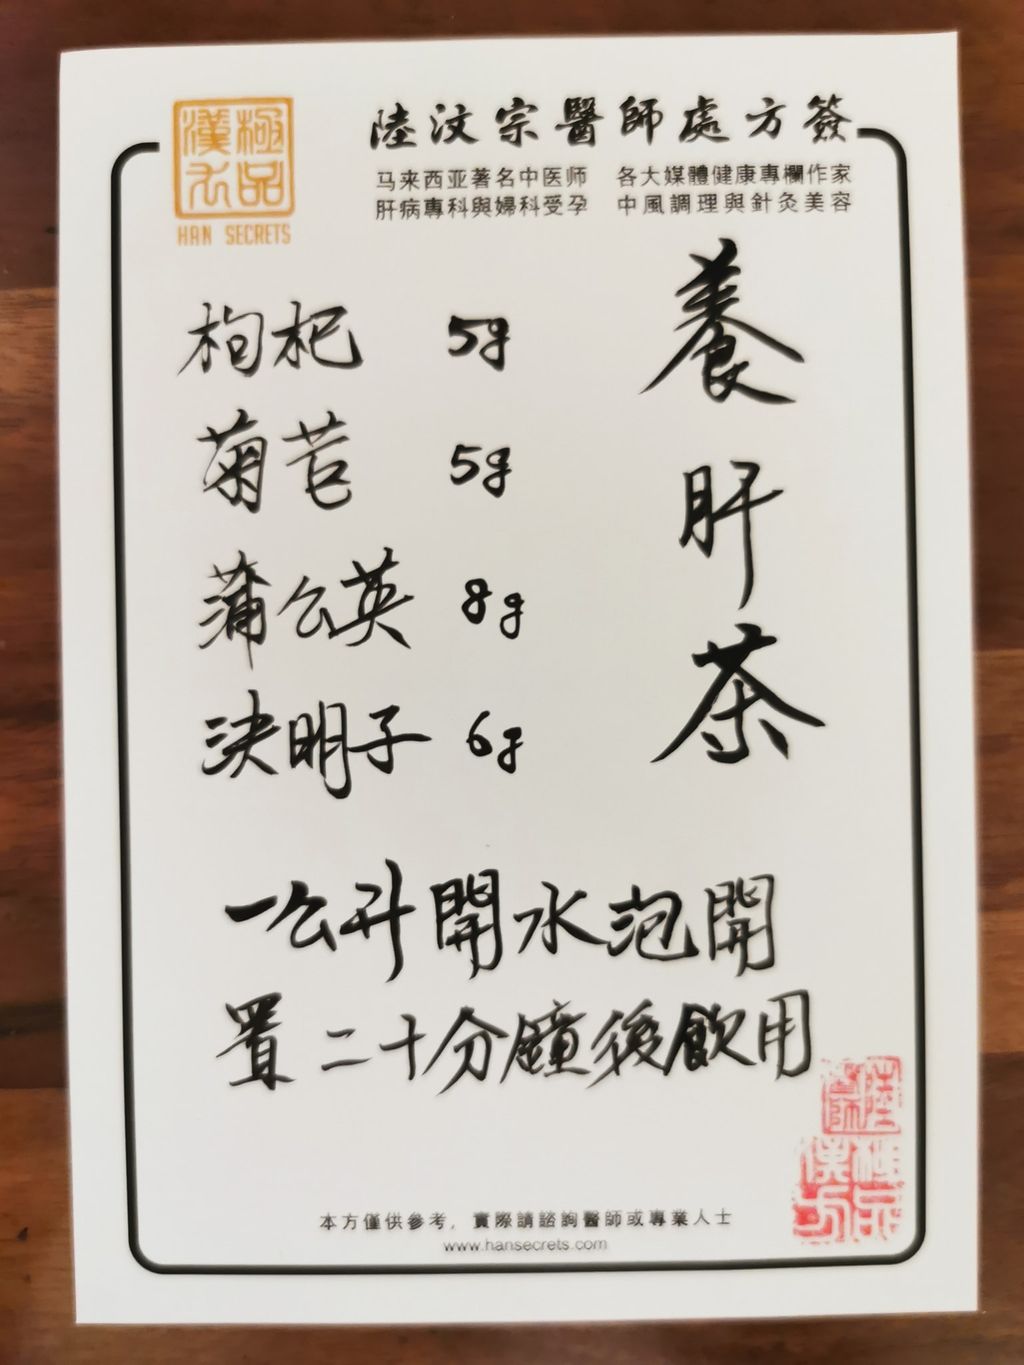 極品
漢方
HAN SECRETS
陸汶宗醫師處方簽
马来西亚著名中医师 各大媒體健康專欄作家
肝病專科與婦科受孕 中風調理與針灸美容
養肝茶
枸杞 5g
菊苣 5g
蒲公英 8g
決明子 6g
一公升開水泡開
置二十分鐘後飲用
陸醫師
極品漢方
本方僅供參考，實際請諮詢醫師或專業人士
www.hansecrets.com